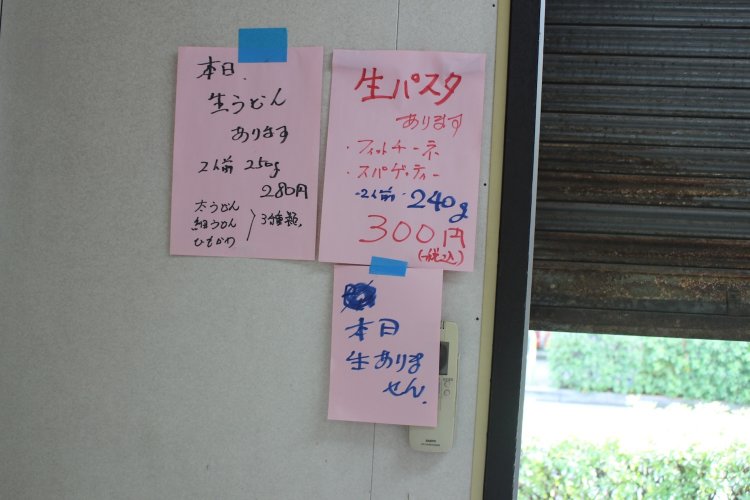 本日
生うどん
あります
2人前 250g
280円
太うどん
細うどん
ひもかわ
3種類
生パスタ
あります
・フィットチーネ
・スパゲッティー
-2人前- 240g
300円
(税込)
本日
生ありま
せん.
SANYO